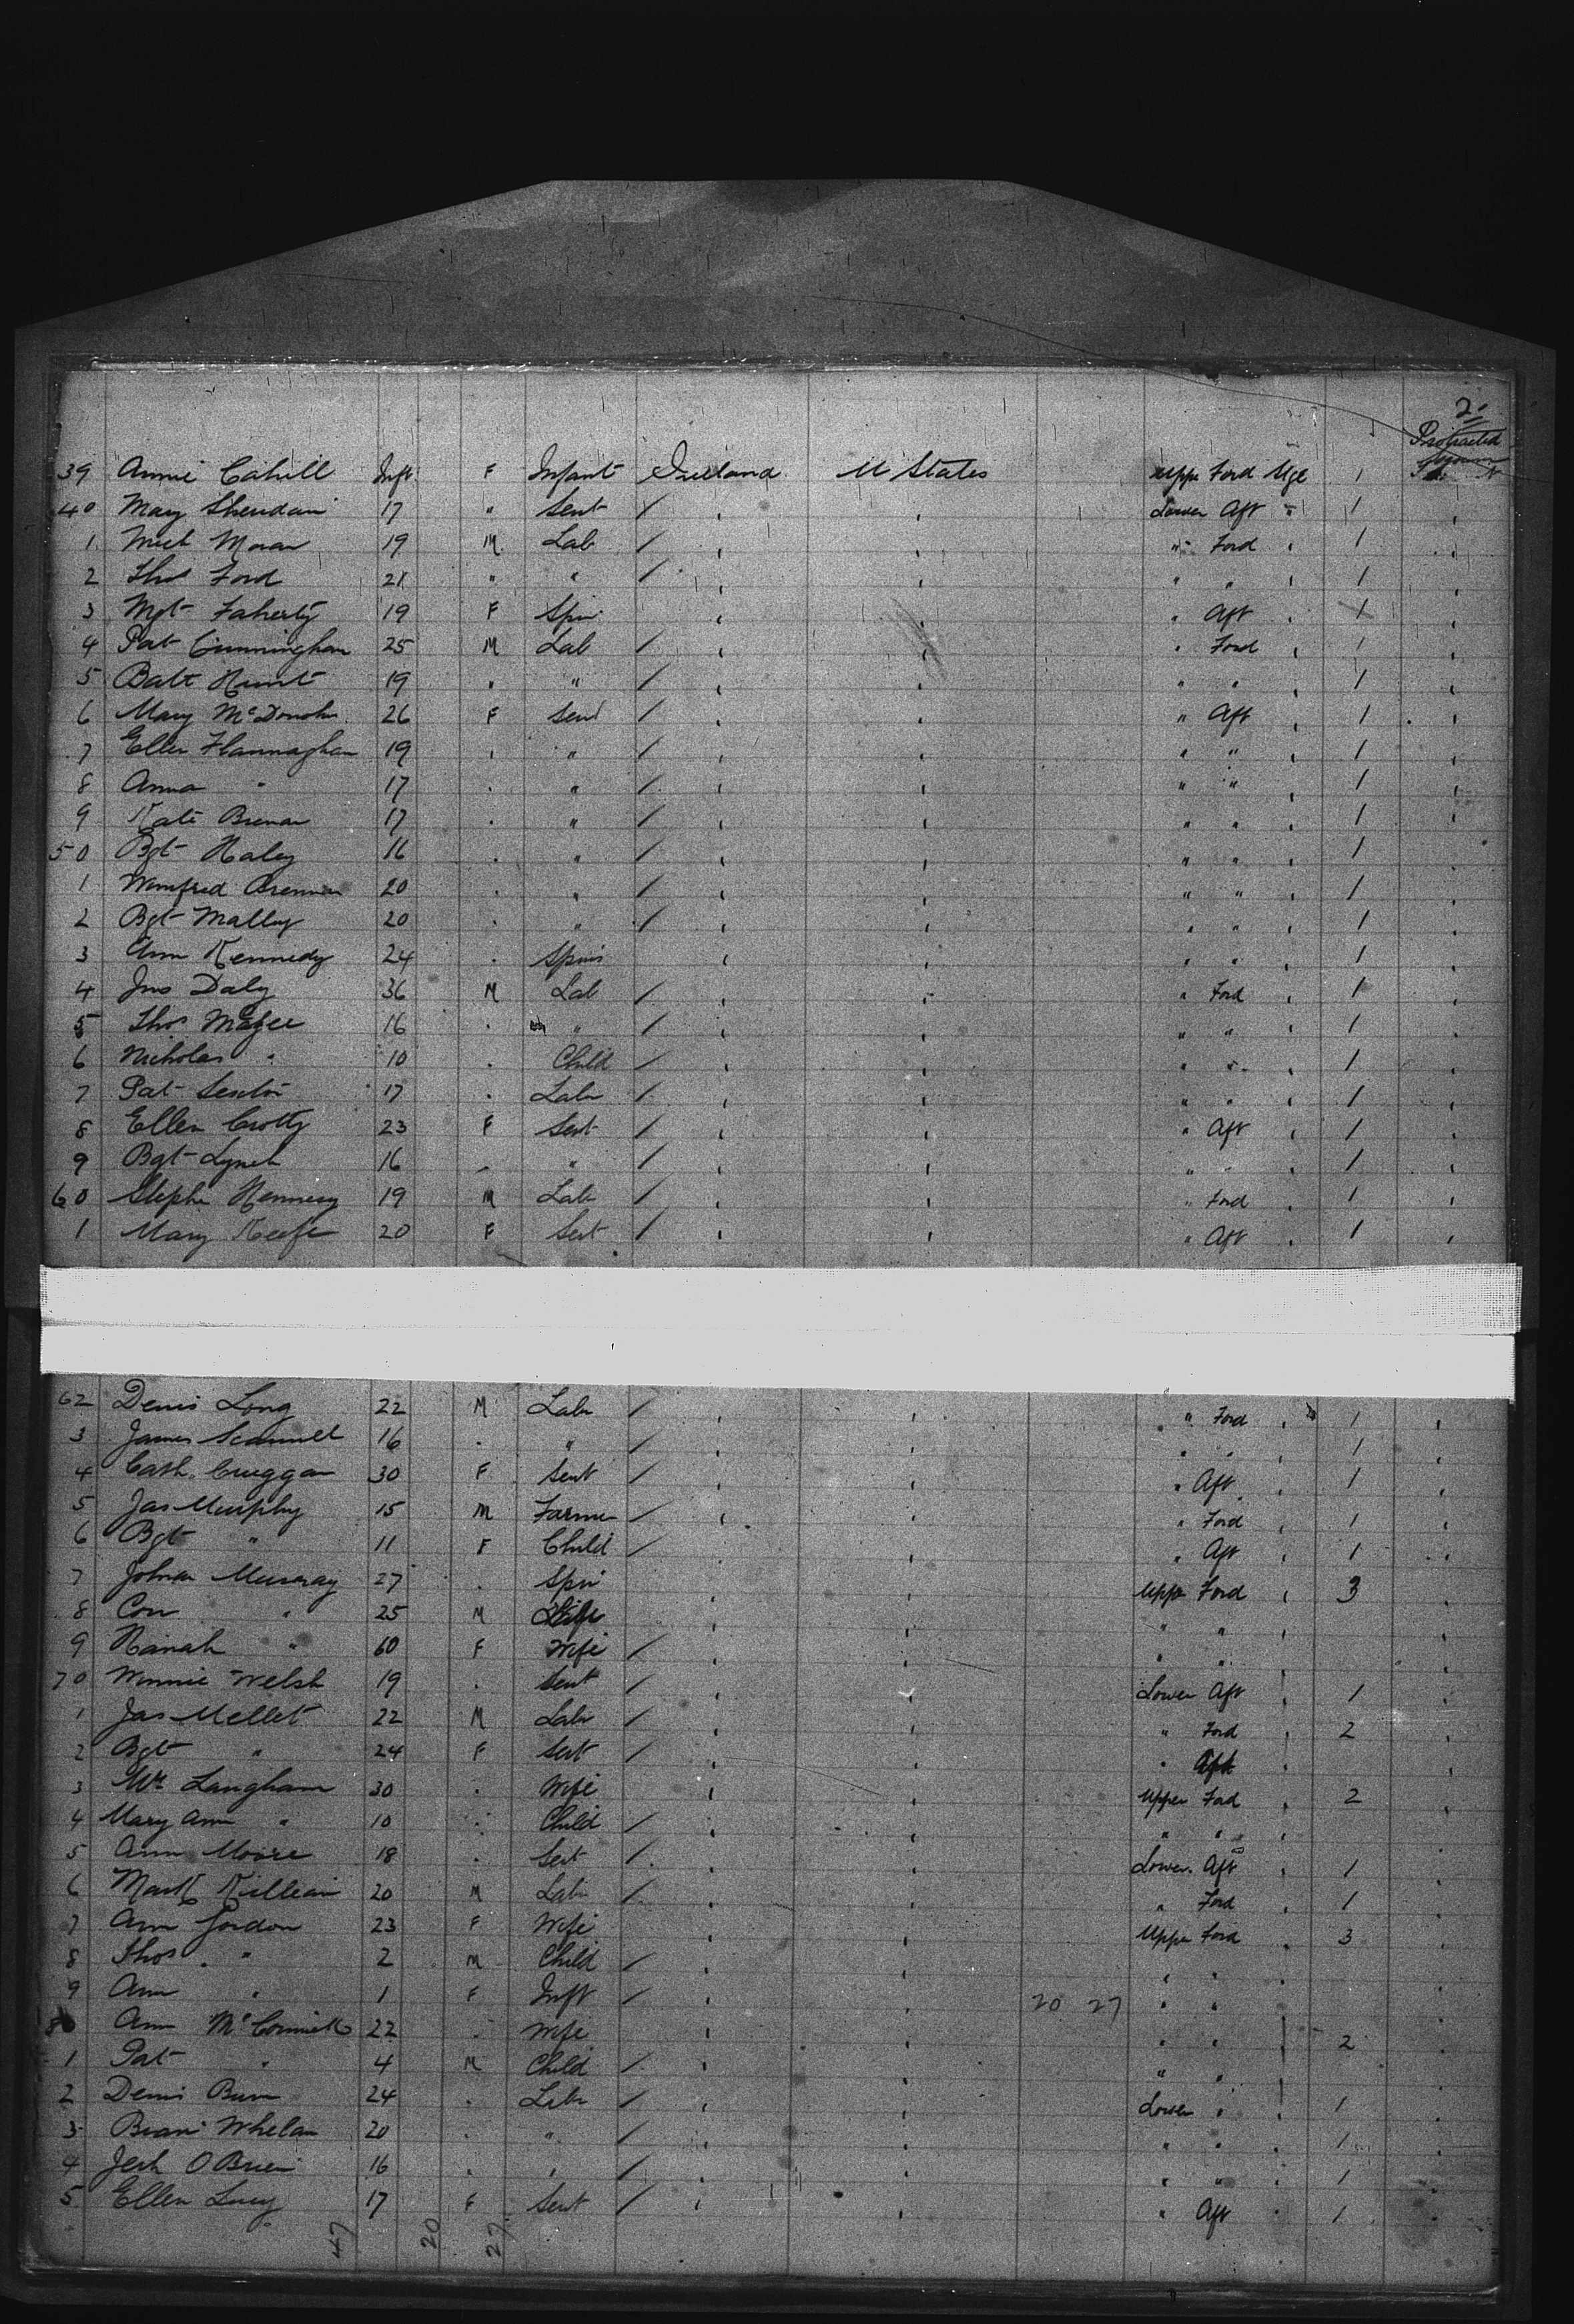 2
Protracted
39 Annie Cahill Inft F Infant Ireland U States Uppr Ford Stge 1
40 Mary Sheridan 17 " Sevt / , , Lower Aft " 1 ,
1 Mich Moran 19 M Lab / , , " Ford , 1 ,
2 Thos Ford 21 " " / , , " " , 1 ,
3 Mgt Faherty 19 F Spin , , " Aft , 1 ,
4 Pat Cunningham 25 M Lab / , , " Ford , 1 ,
5 Batt Hunt 19 " " / , , " " , 1 ,
6 Mary McDonohu 26 F Sevt / , , " Aft , 1 ,
7 Ellen Flannaghan 19 " " / , , " " , 1 ,
8 Anna " 17 " " / , , " " , 1 ,
9 Kate Brenan 17 " " / , , " " , 1 ,
50 Bgt Haley 16 " " / , , " " , 1 ,
1 Winifred Brennan 20 " " / , , " " , 1 ,
2 Bgt Malley 20 " " / , , " " , 1 ,
3 Ann Kennedy 24 " Spin , , " " , 1 ,
4 Jno Daly 36 M Lab / , , " Ford , 1 ,
5 Thos Magee 16 " " / , , " " , 1 ,
6 Nicholas " 10 " Child / , , " " , 1 ,
7 Pat Sexton 17 " Labr / , , " " , 1 ,
8 Ellen Crotty 23 F Sevt / , , " Aft , 1 ,
9 Bgt Lynch 16 " " / , , " " , 1 ,
60 Stephn Hennesy 19 M Labr / , , " Ford , 1 ,
1 Mary Keefe 20 F Sevt / , , " Aft , 1 ,
62 Denis Long 22 M Labr / , , " Ford , 1 ,
3 James Scannell 16 " " / , , " " , 1 ,
4 Cath. 30 F Sevt / , , " Aft , 1 ,
5 Jas Murphy 15 M Farmer / , , " Ford , 1 ,
6 Bgt " 11 F Child / , , " Aft , 1 ,
7 Johna Murray 27 " Spin , , Uppr Ford , 3 ,
8 Con " 25 M , , " " , ,
9 Hanah " 60 F Wife / , , " " , ,
70 Winnie Welsh 19 " Sevt / , , Lower Aft , 1 ,
1 Jas Mellet 22 M Labr / , , " Ford , 2 ,
2 Bgt " 24 F Sevt / , , " Aft , ,
3 Langham 30 " Wife , , Upper Ford , 2 ,
4 Mary Ann " 10 " Child / , , " " , ,
5 Ann Moore 18 " Sevt / , , Lower Aft , 1 ,
6 Mark Killean 20 M Labr / , , " Ford , 1 ,
7 Ann Jordon 23 F Wife , , Uppr Ford , 3 ,
8 Thos " 2 M Child / , , " " , ,
9 Ann " 1 F Inft / , , 20 27 " " ,
80 Ann McCormick 22 " Wife , , " " 2 ,
1 Pat " 4 M Child / , , " " ,
2 Denis 24 " Labr / , , Lower " 1 ,
3 Whelan 20 " " / , , " " , 1 ,
4 Jerh OBrien 16 " " / , , " " , 1 ,
5 Ellen Lucy 17 F Sevt / , , " Aft , 1 ,
47 20 27